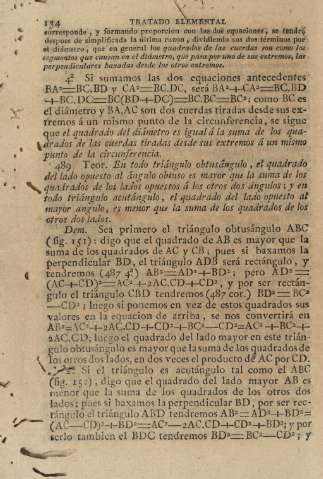 134 TRATADO ELEMENTAL
corresponde, y formando proporcion con las dos equaciones, se tendrá
despues de simplificada la última razon, dividiendo sus dos términos por
el diámetro, que en general los quadrados de las cuerdas son como los
segmentos que causan en el diámetro, que pasa por uno de sus extremos, las
perpendiculares baxadas desde los otros extremos.
4ª Si sumamos las dos equaciones antecedentes
BA²=BC.BD y CA²=BC.DC, será BA²+CA²=BC.BD
+BC.DC=BC(BD+DC)=BC.BC=BC²; como BC es
el diámetro y BA, AC son dos cuerdas tiradas desde sus ex-
tremos á un mismo punto de la circunferencia, se sigue
que el quadrado del diámetro es igual á la suma de los qua-
drados de las cuerdas tiradas desde sus extremos á un mismo
punto de la circunferencia.
489 Teor. En todo triángulo obtusángulo, el quadrado
del lado opuesto al ángulo obtuso es mayor que la suma de los
quadrados de los lados opuestos á los otros dos ángulos; y en
todo triángulo acutángulo, el quadrado del lado opuesto al
mayor angulo, es menor que la suma de los quadrados de los
otros dos lados.
Dem. Sea primero el triángulo obtusángulo ABC
(fig. 151): digo que el quadrado de AB es mayor que la
suma de los quadrados de AC y CB; pues si baxamos la
perpendicular BD, el triángulo ADB será rectángulo, y
tendremos (487 4º) AB²=AD²+BD²; pero AD²=
(AC+CD)²=AC²+2AC.CD+CD², y por ser rectán-
gulo el triángulo CBD tendremos (487 cor.) BD²=BC²
—CD²; luego si ponemos en vez de estos quadrados sus
valores en la equacion de arriba, se nos convertirá en
AB²=AC²+2AC.CD+CD²+BC²—CD²=AC²+BC²+
2AC.CD; luego el quadrado del lado mayor en este trián-
gulo obtusángulo es mayor que la suma de los quadrados de
los otros dos lados, en dos veces el producto de AC por CD.
2º Si el triángulo es acutángulo tal como el ABC
(fig. 152), digo que el quadrado del lado mayor AB es
menor que la suma de los quadrados de los otros dos
lados; pues si baxamos la perpendicular BD, por ser rec-
tángulo el triángulo ABD tendremos AB²=AD²+BD²=
(AC—CD)²+BD²=AC²—2AC.CD+CD²+BD²; y por
serlo tambien el BDC tendremos BD²=BC²—CD²; y